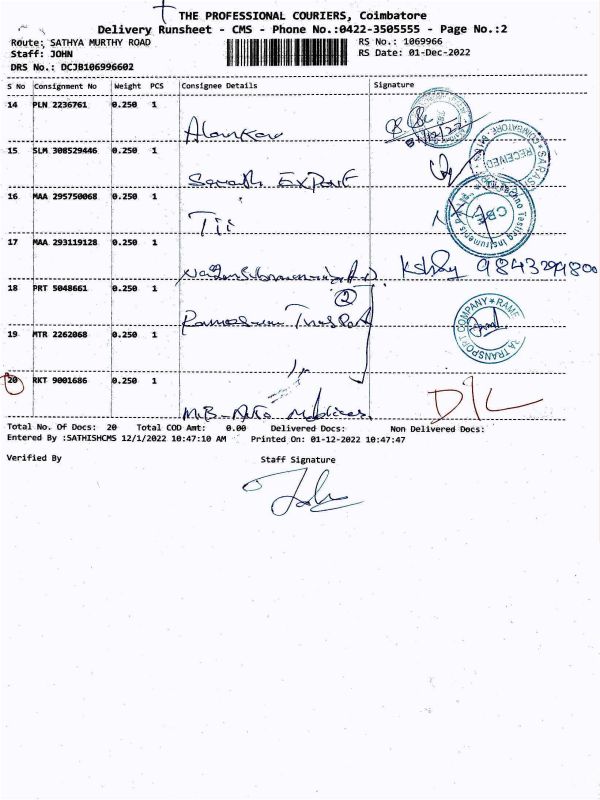 THE PROFESSIONAL COURIERS, Coimbatore
Delivery Runsheet - CMS - Phone No.:0422-3505555 - Page No.:2
Route: SATHYA MURTHY ROAD RS No.: 1069966
Staff: JOHN RS Date: 01-Dec-2022
DRS No.: DCJB106996602
S No Consignment No Weight PCS Consignee Details Signature
14 PLN 2236761 0.250 1
Alankar
15 SLM 308529446 0.250 1
Sarath Export
RECEIVED
16 MAA 295750068 0.250 1
Tii
CBE
17 MAA 293119128 0.250 1
9843299800
18 PRT 5048661 0.250 1
2
Transport
19 MTR 2262068 0.250 1
TRANSPORT COMPANY
20 RKT 9001686 0.250 1
M.B-Auto
D/L
Total No. Of Docs: 20 Total COD Amt: 0.00 Delivered Docs: Non Delivered Docs:
Entered By :SATHISHCMS 12/1/2022 10:47:10 AM Printed On: 01-12-2022 10:47:47
Verified By Staff Signature